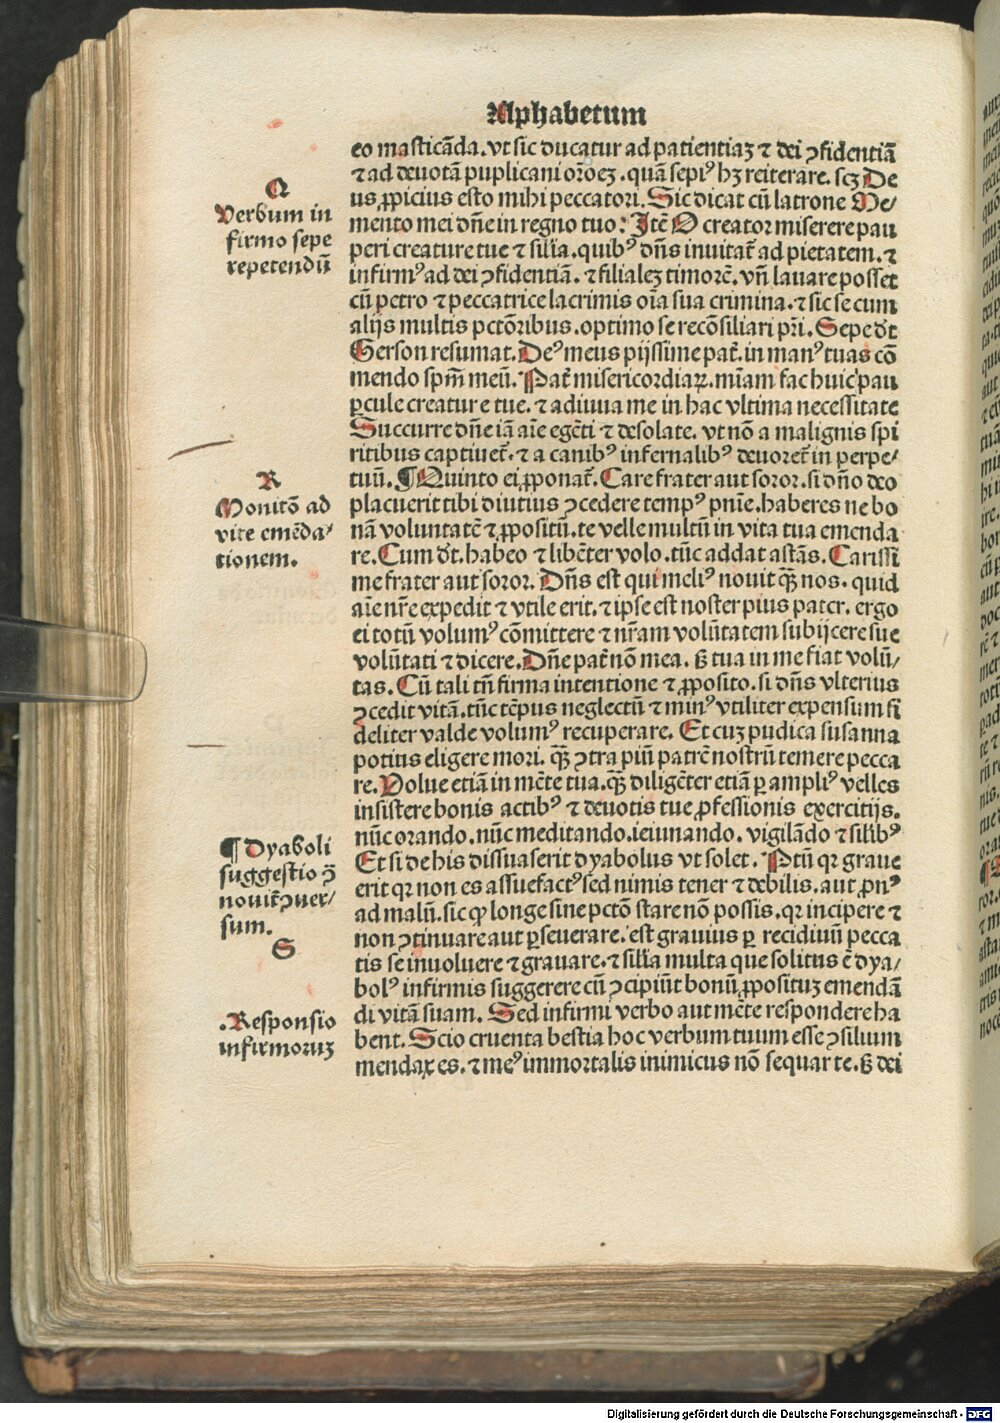 Alphabetum
eo masticãda. vt sic ducatur ad patientiaʒ ⁊ dei ꝯfidentiã
⁊ ad deuotã puplicani orõeʒ. quã sepiꝰ hʒ reiterare. scʒ De
us ꝓpicius esto mihi peccatori. Sic dicat cũ latrone Me⸗
mento mei dñe in regno tuo: Itẽ O creator miserere pau
peri creature tue ⁊ sil̃ia. quibꝰ dñs inuitat̃ ad pietatem. ⁊
infirmꝰ ad dei ꝯfidentiã. ⁊ filialeʒ timorẽ. vñ lauare posset
cũ petro ⁊ peccatrice lacrimis oĩa sua crimina. ⁊ sic se cum
alijs multis pctõribus. optimo se recõsiliari pr̃i. Sepe dt̃
Gerson resumat. Deꝰ meus pijssime pat̃. in manꝰ tuas cõ
mendo spm̃ meũ. Pat̃ misericordiaꝝ. mĩam fac huic pau
ꝑcule creature tue. ⁊ adiuua me in hac vltima necessitate
Succurre dñe iã aĩe egẽti ⁊ desolate. vt nõ a malignis spi
ritibus captiuet̃. ⁊ a canibꝰ infernalibꝰ deuoret̃ in perpe⸗
tuũ. ¶ Quinto ei ꝓponat̃. Care frater aut soror. si dño deo
placuerit tibi diutius ꝯcedere tempꝰ pnĩe. haberes ne bo
nã voluntatẽ ⁊ ꝓpositũ. te velle multũ in vita tua emenda
re. Cum dt̃. habeo ⁊ libẽter volo. tũc addat astãs. Carissi
me frater aut soror. Dñs est qui meliꝰ nouit qꝫ̃ nos. quid
aĩe nr̃e expedit ⁊ vtile erit. ⁊ ipse est noster pius pater. ergo
ei totũ volumꝰ cõmittere ⁊ nr̃am volũtatem subijcere sue
volũtati ⁊ dicere. Dñe pat̃ nõ mea. ꝭ tua in me fiat volũ⸗
tas. Cũ tali tñ firma intentione ⁊ ꝓposito. si dñs vlterius
ꝯcedit vitã. tũc tẽpus neglectũ ⁊ minꝰ vtiliter expensum fi
deliter valde volumꝰ recuperare. Et cuʒ pudica susanna
potius eligere mori. qꝫ̃ ꝯtra piũ patrẽ nostrũ temere pecca
re. Volue etiã in mẽte tua. qꝫ̃ diligẽter etiã ꝑ ampliꝰ velles
insistere bonis actibꝰ ⁊ deuotis tue ꝓfessionis exercitijs.
nũc orando. nũc meditando. ieiunando. vigilãdo ⁊ sil̃ibꝰ
Et si de his dissuaserit dyabolus vt solet. Ptũ qꝛ graue
erit qꝛ non es assuefactꝰ sed nimis tener ⁊ debilis. aut ꝓnꝰ
ad malũ. sic ꝙ longe sine pctõ stare nõ possis. qꝛ incipere ⁊
non ꝯtinuare aut ꝑseuerare. est grauius ꝑ recidiuũ pecca
tis se inuoluere ⁊ grauare. ⁊ sil̃ia multa que solitus ẽ dya⸗
bolꝰ infirmis suggerere cũ ꝯcipiũt bonũ ꝓposituʒ emendã
di vitã suam. Sed infirmi verbo aut mẽte respondere ha
bent. Scio cruenta bestia hoc verbum tuum esse ꝯsilium
mendax es. ⁊ meꝰ immortalis inimicus nõ sequar te. ꝭ dei
Q
Verbum in
firmo sepe
repetendũ
R
Monitõ ad
vite emẽda⸗
tionem.
¶ Dyaboli
suggestio ꝯ̃
nouit̃ ꝯuer⸗
sum.
S
.Responsio
infirmoruʒ
Digitalisierung gefördert durch die Deutsche Forschungsgemeinschaft - DFG